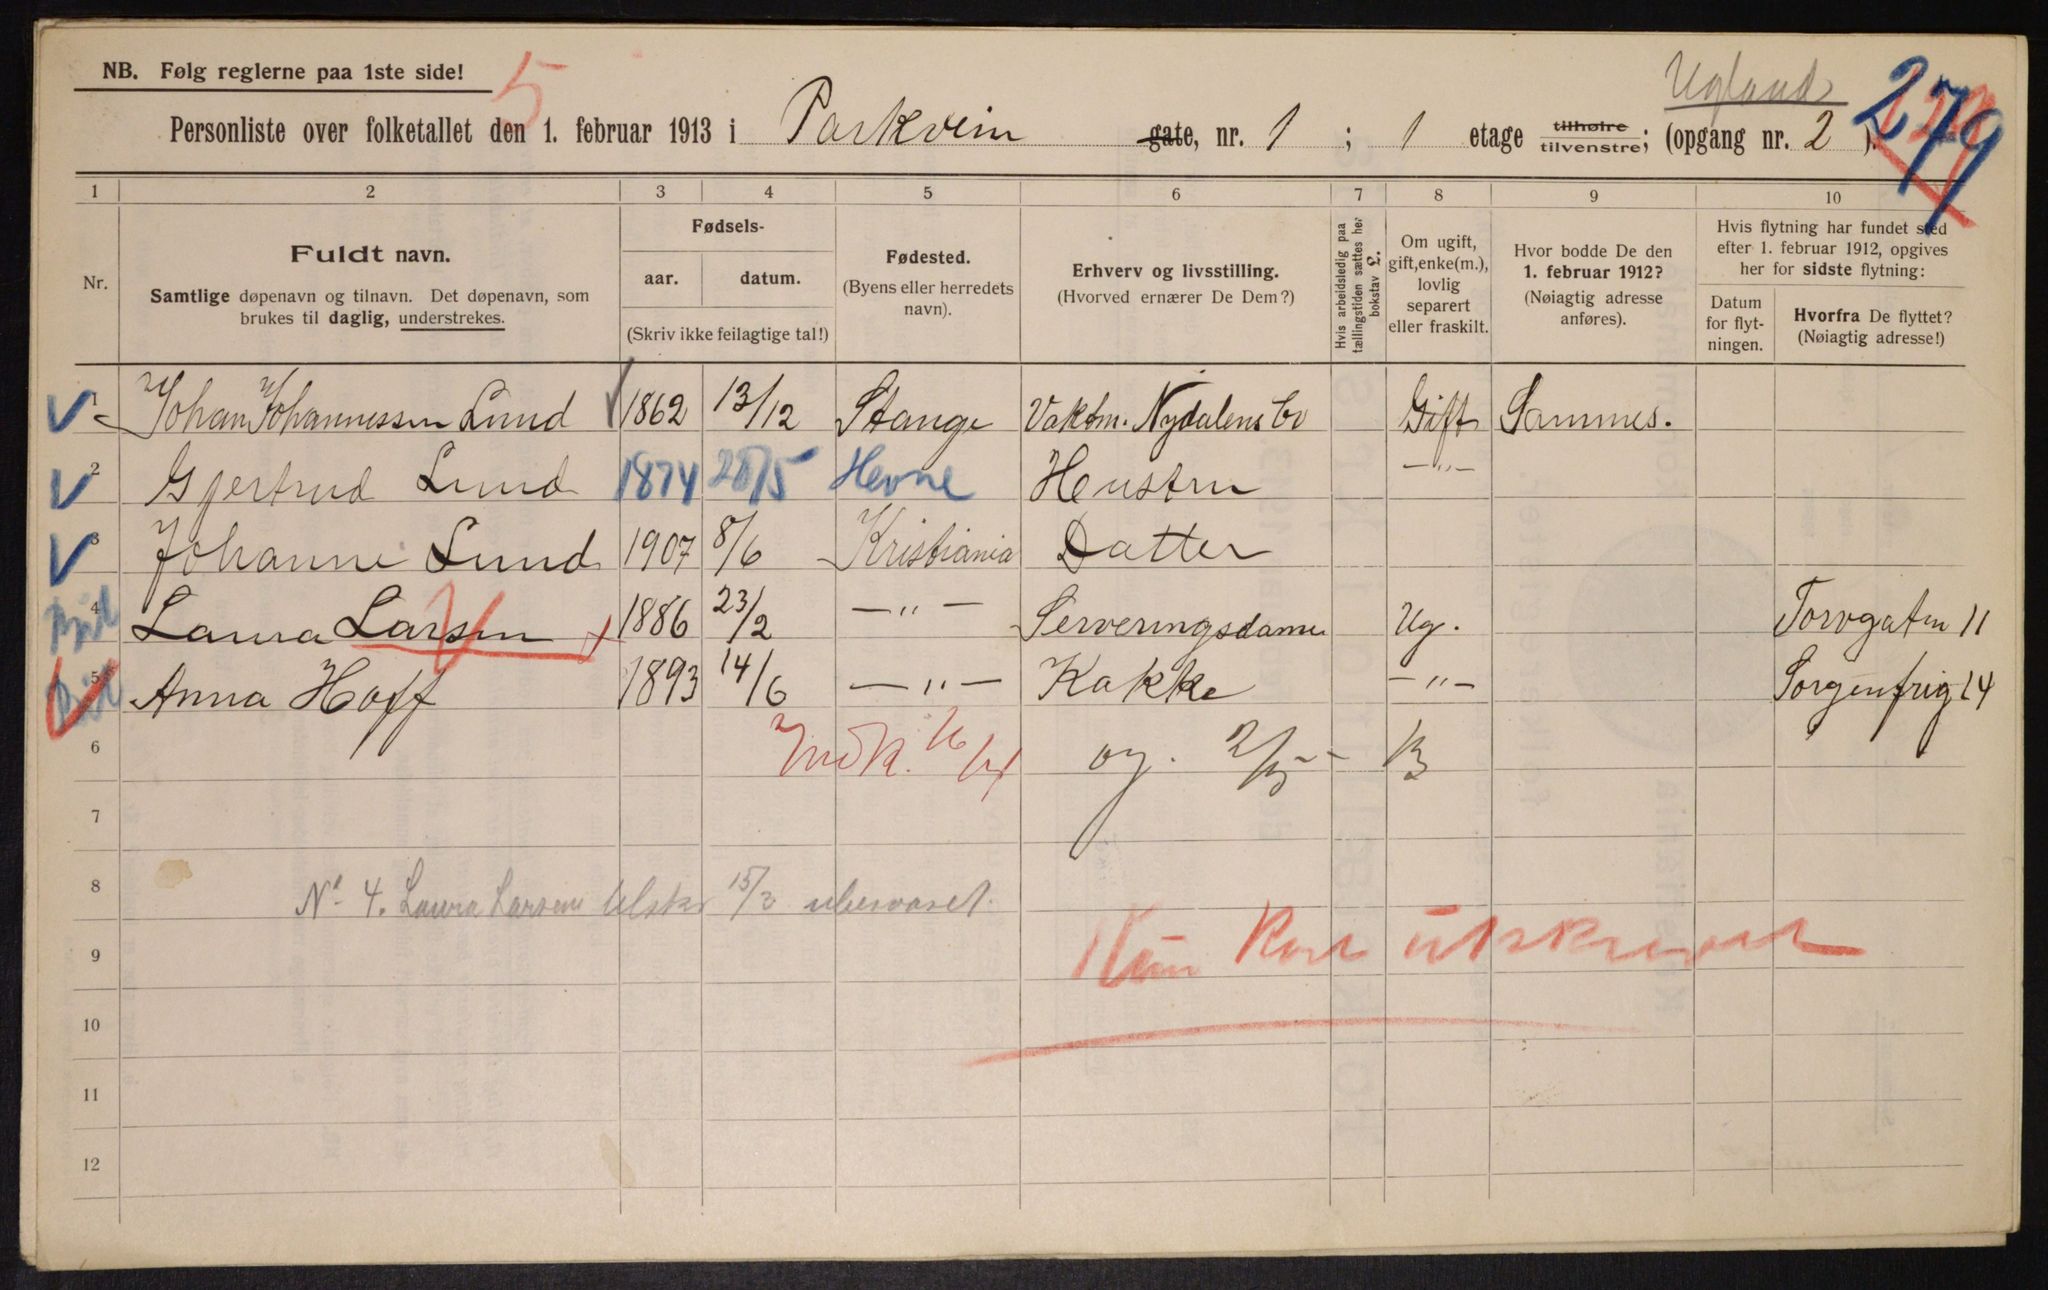 Ugland
279
NB. Følg reglerne paa 1ste side!
5
Personliste over folketallet den 1. februar 1913 i Parkvein gate, nr. 1 ; 1 etage tilhøire tilvenstre; (opgang nr. 2 ).
1 2 3 4 5 6 7 8 9 10
Nr.
Fuldt navn.
Samtlige døpenavn og tilnavn. Det døpenavn, som
brukes til daglig, understrekes.
Fødsels-
aar. datum.
(Skriv ikke feilagtige tal!)
Fødested.
(Byens eller herredets
navn).
Erhverv og livsstilling.
(Hvorved ernærer De Dem?)
Hvis arbeidsledig paa
tællingstiden sættes her
bokstav L.
Om ugift,
gift, enke(m.),
lovlig
separert
eller fraskilt.
Hvor bodde De den
1. februar 1912?
(Nøiagtig adresse
anføres).
Hvis flytning har fundet sted
efter 1. februar 1912, opgives
her for sidste flytning:
Datum
for flyt-
ningen.
Hvorfra De flyttet?
(Nøiagtig adresse!)
1 Johan Johannessen Lund 1862 13/12 Stange Vaktm. Nydalens Co Gift Sammes.
2 Gjertrud Lund 1874 28/5 Hevne Hustru —"—
3 Johanne Lund 1907 8/6 Kristiania Datter
4 Laura Larsen 1886 23/2 —"— Serveringsdame Ug. Torvgaten 11
5 Anna Hoff 1893 13/6 —"— Kokke —"— Sorgenfrig 14
6
og. 2/5 - 13
7
8 No 4. Laura Larsen tilskr 15/3 ubesvaret.
9 Kun Kort utskrevet
10
11
12